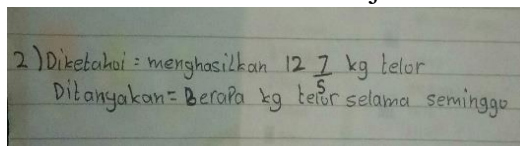 2) Diketahui = menghasilkan 12 7/5 kg telor
Ditanyakan = Berapa kg telur selama seminggu